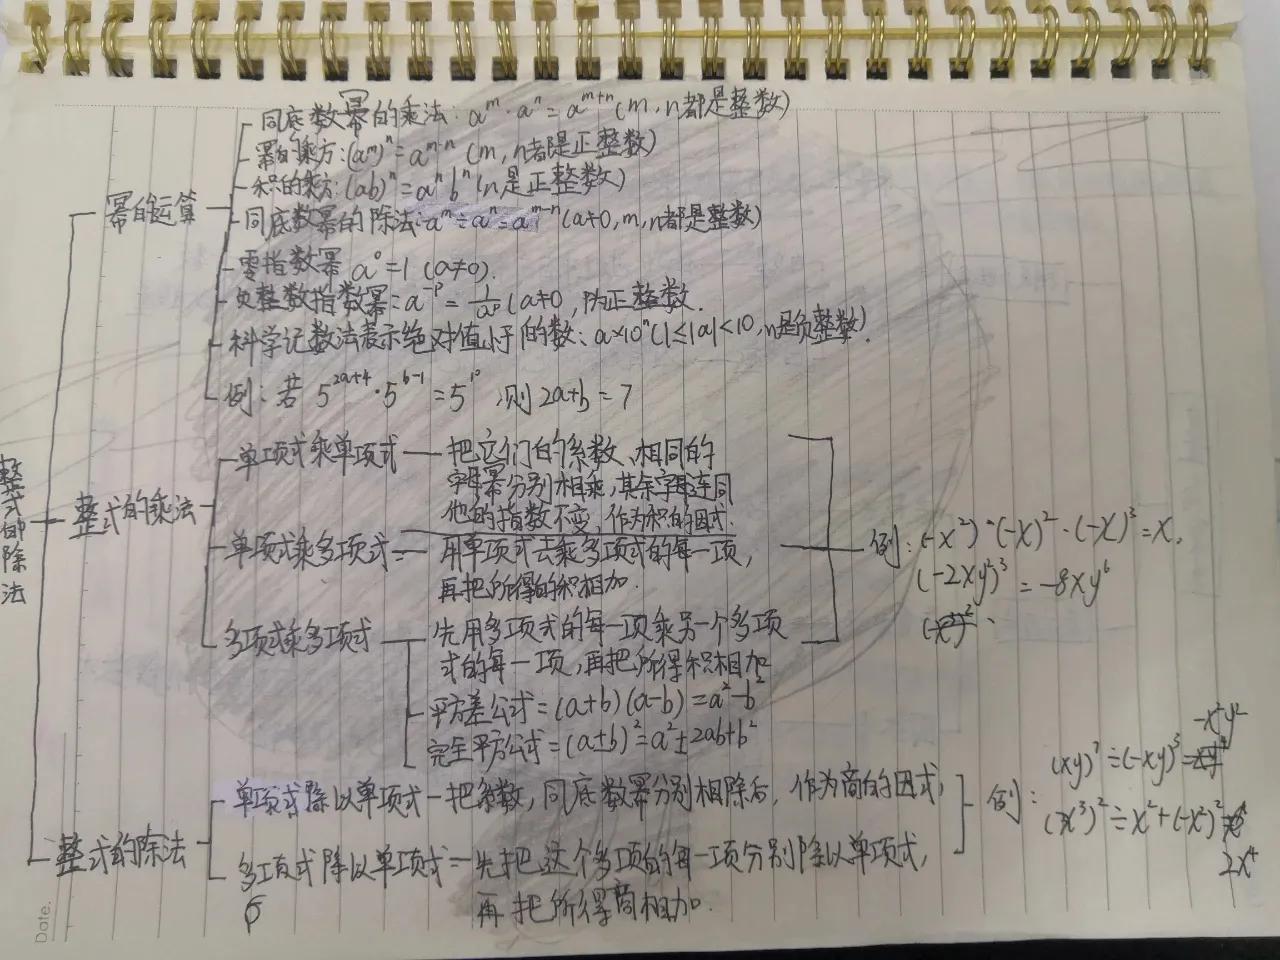 同底数幂的乘法: a^m·a^n=a^{m+n}(m,n都是整数)
幂的乘方:(a^m)^n=a^{m·n}(m,n都是正整数)
积的乘方:(ab)^n=a^n b^n(n是正整数)
幂的运算
同底数幂的除法:a^m÷a^n=a^{m-n}(a≠0,m,n都是整数)
零指数幂 a^0=1 (a≠0).
负整数指数幂:a^{-p}=1/a^p(a≠0,p为正整数.
科学记数法表示绝对值小于1的数:a×10^n(1≤|a|<10,n是负整数).
例:若 5^{2a+4}·5^{b-1}=5^{10},则2a+b=7
整式的除法
整式的乘法
单项式乘单项式—把它们的系数、相同的
字母幂分别相乘,其余字母连同
他的指数不变,作为积的因式.
单项式乘多项式—用单项式去乘多项式的每一项,
再把所得的积相加.
多项式乘多项式—先用多项式的每一项乘另一个多项
式的每一项,再把所得积相加
平方差公式=(a+b)(a-b)=a²-b²
完全平方公式=(a±b)²=a²±2ab+b²
例:(-x²)·(-x)²·(-x)³=x,
(-2xy²)³=-8xy⁶
整式的除法
单项式除以单项式—把系数,同底数幂分别相除后,作为商的因式,
多项式除以单项式—先把这个多项的每一项分别除以单项式,
再把所得商相加.
例:
-x⁴y²
(xy)⁷÷(-xy)³=
(3x³)²÷x²+(-x²)²
2x⁴
Date.